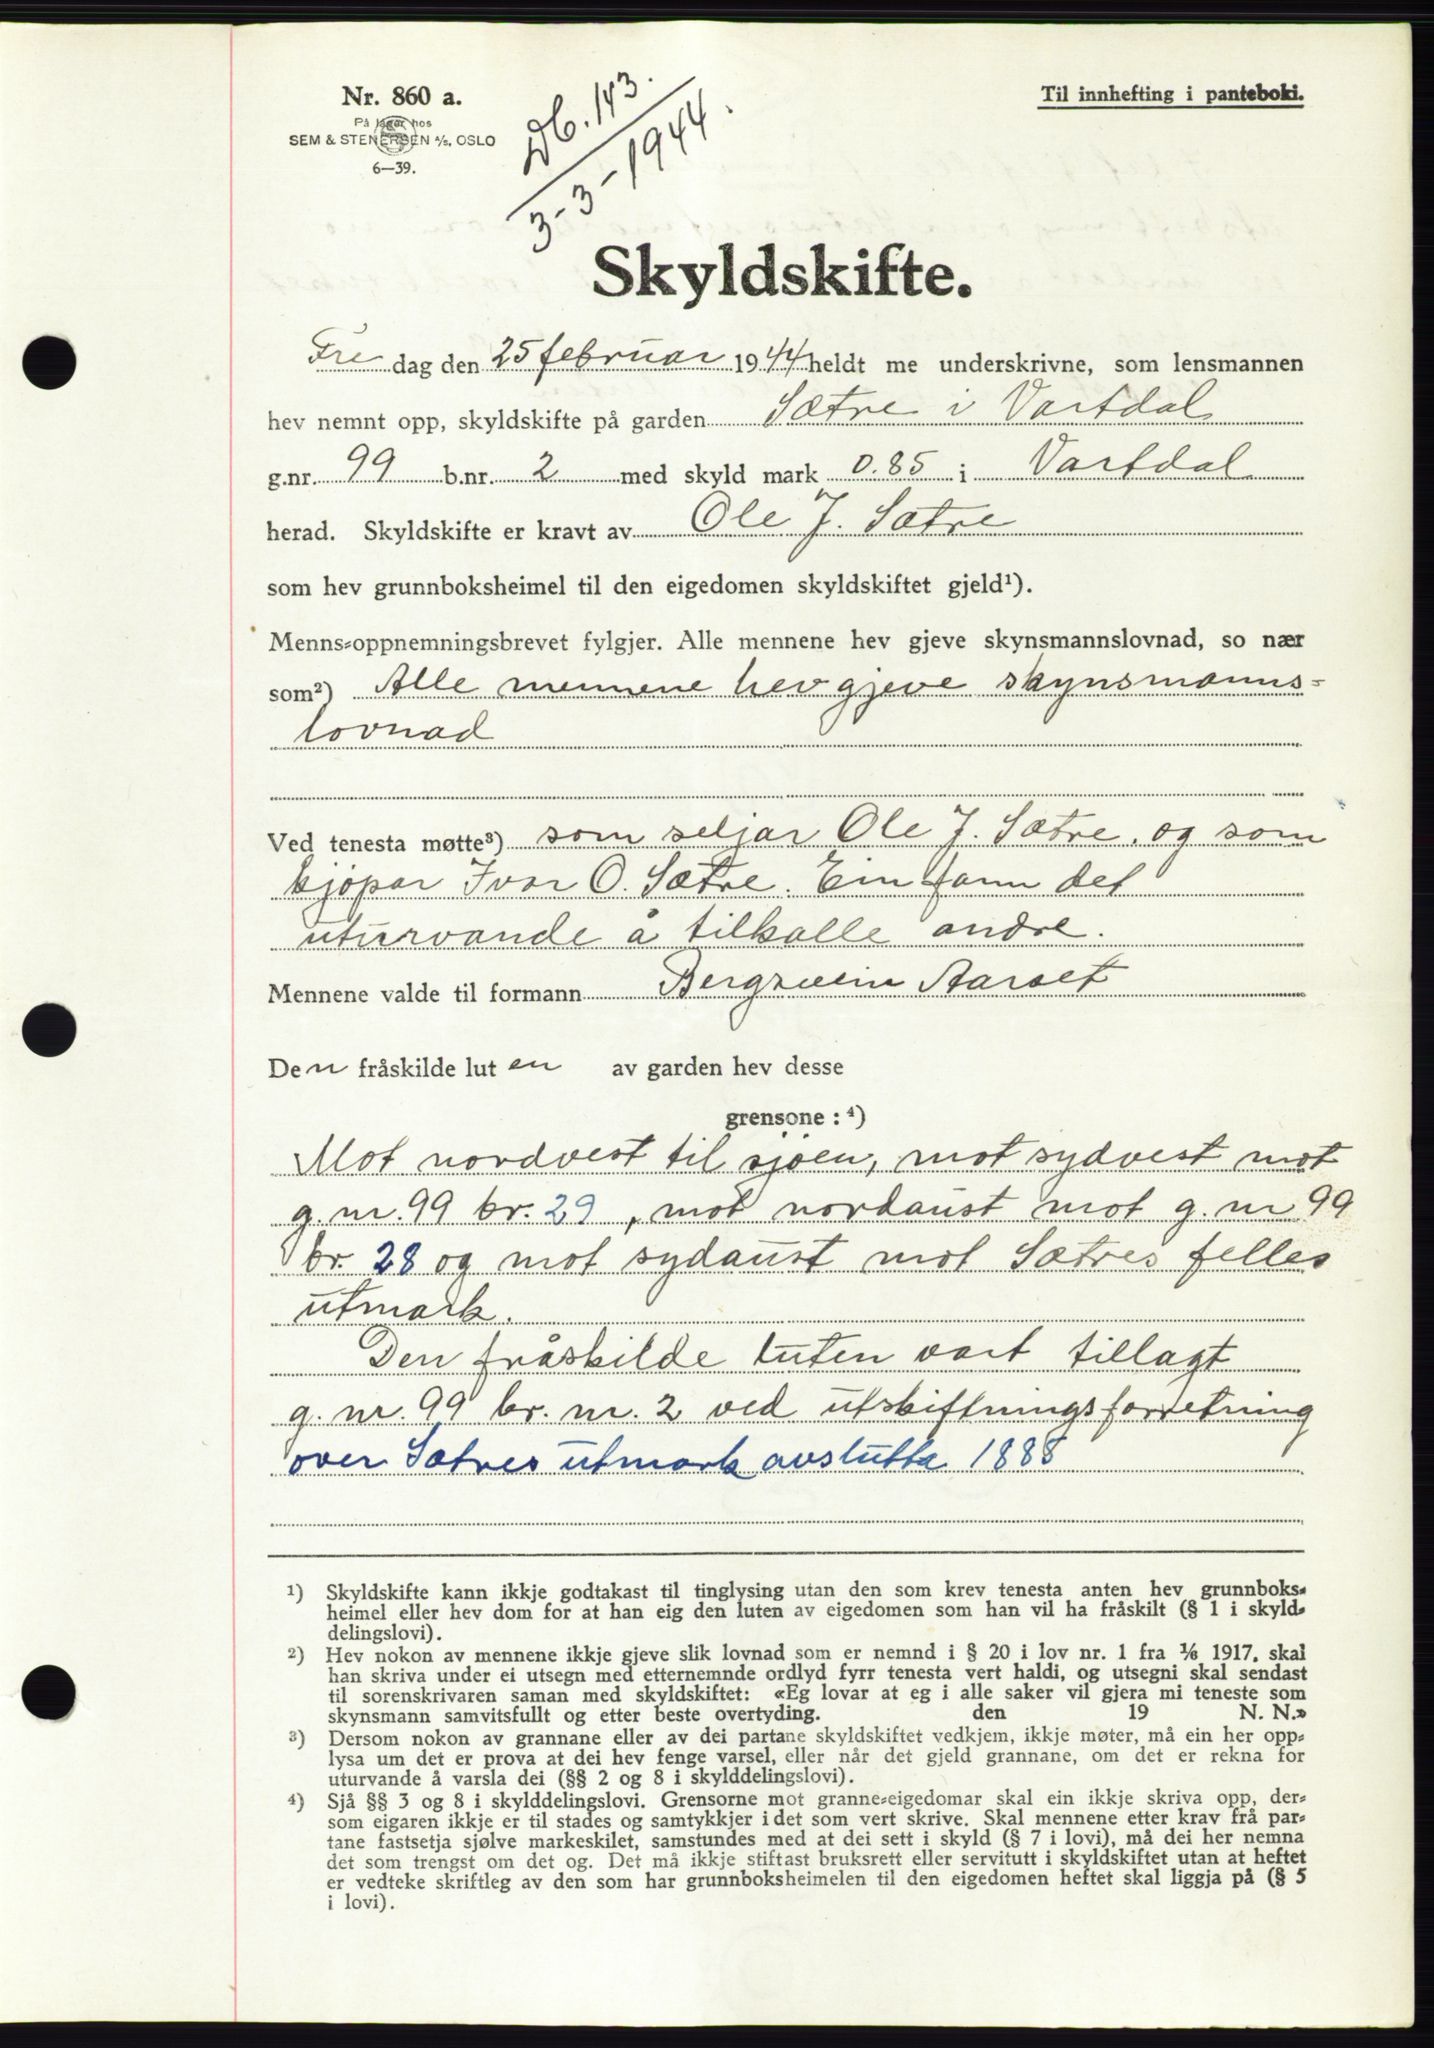 Nr. 860 a.
På lager hos
SEM & STENERSEN A/S, OSLO
6—39.
Db. 143.
3-3-1944.
Til innhefting i panteboki.
Skyldskifte.
Fre dag den 25 februar 1944 heldt me underskrivne, som lensmannen
hev nemnt opp, skyldskifte på garden Sætre i Vartdal
g.nr. 99 b.nr. 2 med skyld mark 0.85 i Vartdal
herad. Skyldskifte er kravt av Ole J. Sætre
som hev grunnboksheimel til den eigedomen skyldskiftet gjeld¹).
Menns-oppnemningsbrevet fylgjer. Alle mennene hev gjeve skynsmannslovnad, so nær
som²) Alle mennene hev gjeve skynsmanns-
lovnad
Ved tenesta møtte³) som seljar Ole J. Sætre, og som
kjøpar Ivar O. Sætre. Ein fann det
uturvande å tilkalle andre.
Mennene valde til formann Bergsvein Aarset
Den fråskilde luten av garden hev desse
grensone: ⁴)
Mot nordvest til sjøen, mot sydvest mot
g. nr. 99 br. 29, mot nordaust mot g. nr 99
br. 28 og mot sydaust mot Sætres felles
utmark.
Den fråskilde luten vart tillagt
g. nr. 99 br. nr. 2 ved utskiftningsforretning
over Sætres utmark avslutta 1888
¹) Skyldskifte kann ikkje godtakast til tinglysing utan den som krev tenesta anten hev grunnboks-
heimel eller hev dom for at han eig den luten av eigedomen som han vil ha fråskilt (§ 1 i skyld-
delingslovi).
²) Hev nokon av mennene ikkje gjeve slik lovnad som er nemnd i § 20 i lov nr. 1 fra 1/6 1917, skal
han skriva under ei utsegn med etternemnde ordlyd fyrr tenesta vert haldi, og utsegni skal sendast
til sorenskrivaren saman med skyldskiftet: «Eg lovar at eg i alle saker vil gjera mi teneste som
skynsmann samvitsfullt og etter beste overtyding. den 19 N. N.»
³) Dersom nokon av grannane eller av dei partane skyldskiftet vedkjem, ikkje møter, må ein her opp-
lysa um det er prova at dei hev fenge varsel, eller når det gjeld grannane, om det er rekna for
uturvande å varsla dei (§§ 2 og 8 i skylddelingslovi).
⁴) Sjå §§ 3 og 8 i skylddelingslovi. Grensorne mot granne-eigedomar skal ein ikkje skriva opp, der-
som eigaren ikkje er til stades og samtykkjer i det som vert skrive. Skal mennene etter krav frå par-
tane fastsetja sjølve markeskilet, samstundes med at dei sett i skyld (§ 7 i lovi), må dei her nemna
det som trengst om det og. Det må ikkje stiftast bruksrett eller servitutt i skyldskiftet utan at heftet
er vedteke skriftleg av den som har grunnboksheimelen til den eigedomen heftet skal liggja på (§ 5
i lovi).